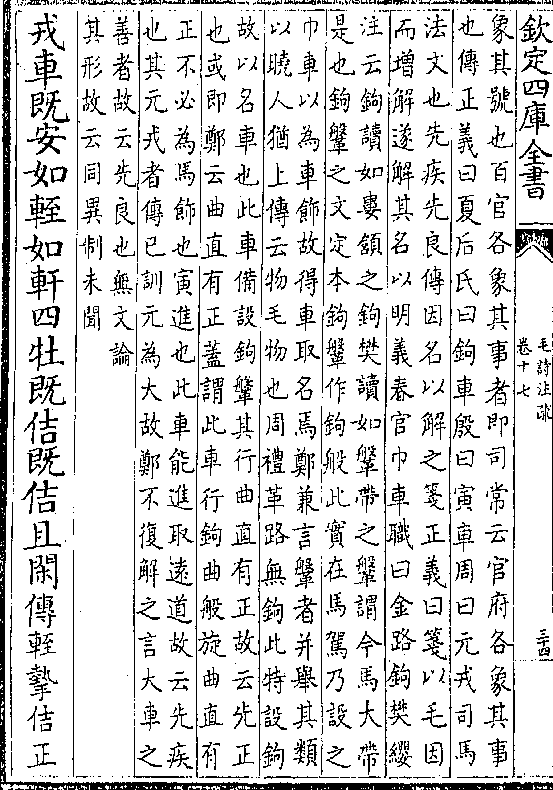 欽定四庫全書
毛詩注疏
卷十七
三十四
象其號也百官各象其事者即司常云官府各象其事
也傳正義曰夏后氏曰鉤車殷曰寅車周曰元戎司馬
法文也先疾先良傳因名以解之箋正義曰箋以毛因
而增解遂解其名以明義春官巾車職曰金路鉤樊纓
注云鉤讀如婁頷之鉤樊讀如鞶帶之鞶謂今馬大帶
是也鉤鞶之文定本鉤鞶作鉤般此實在馬駕乃設之
巾車以為車飾故得車取名焉鄭兼言鞶者并舉其類
以曉人猶上傳云物毛物也周禮革路無鉤此特設鉤
故以名車也此車備設鉤鞶其行曲直有正故云先正
也或即鄭云曲直有正蓋謂此車行鉤曲般旋曲直有
正不必為馬飾也寅進也此車能進取遠道故云先疾
也其元戎者傳已訓元為大故鄭不復解之言大車之
善者故云先良也無文論
其形故云同異制未聞
戎車既安如輊如軒四牡既佶既佶且閑傳輊摯佶正